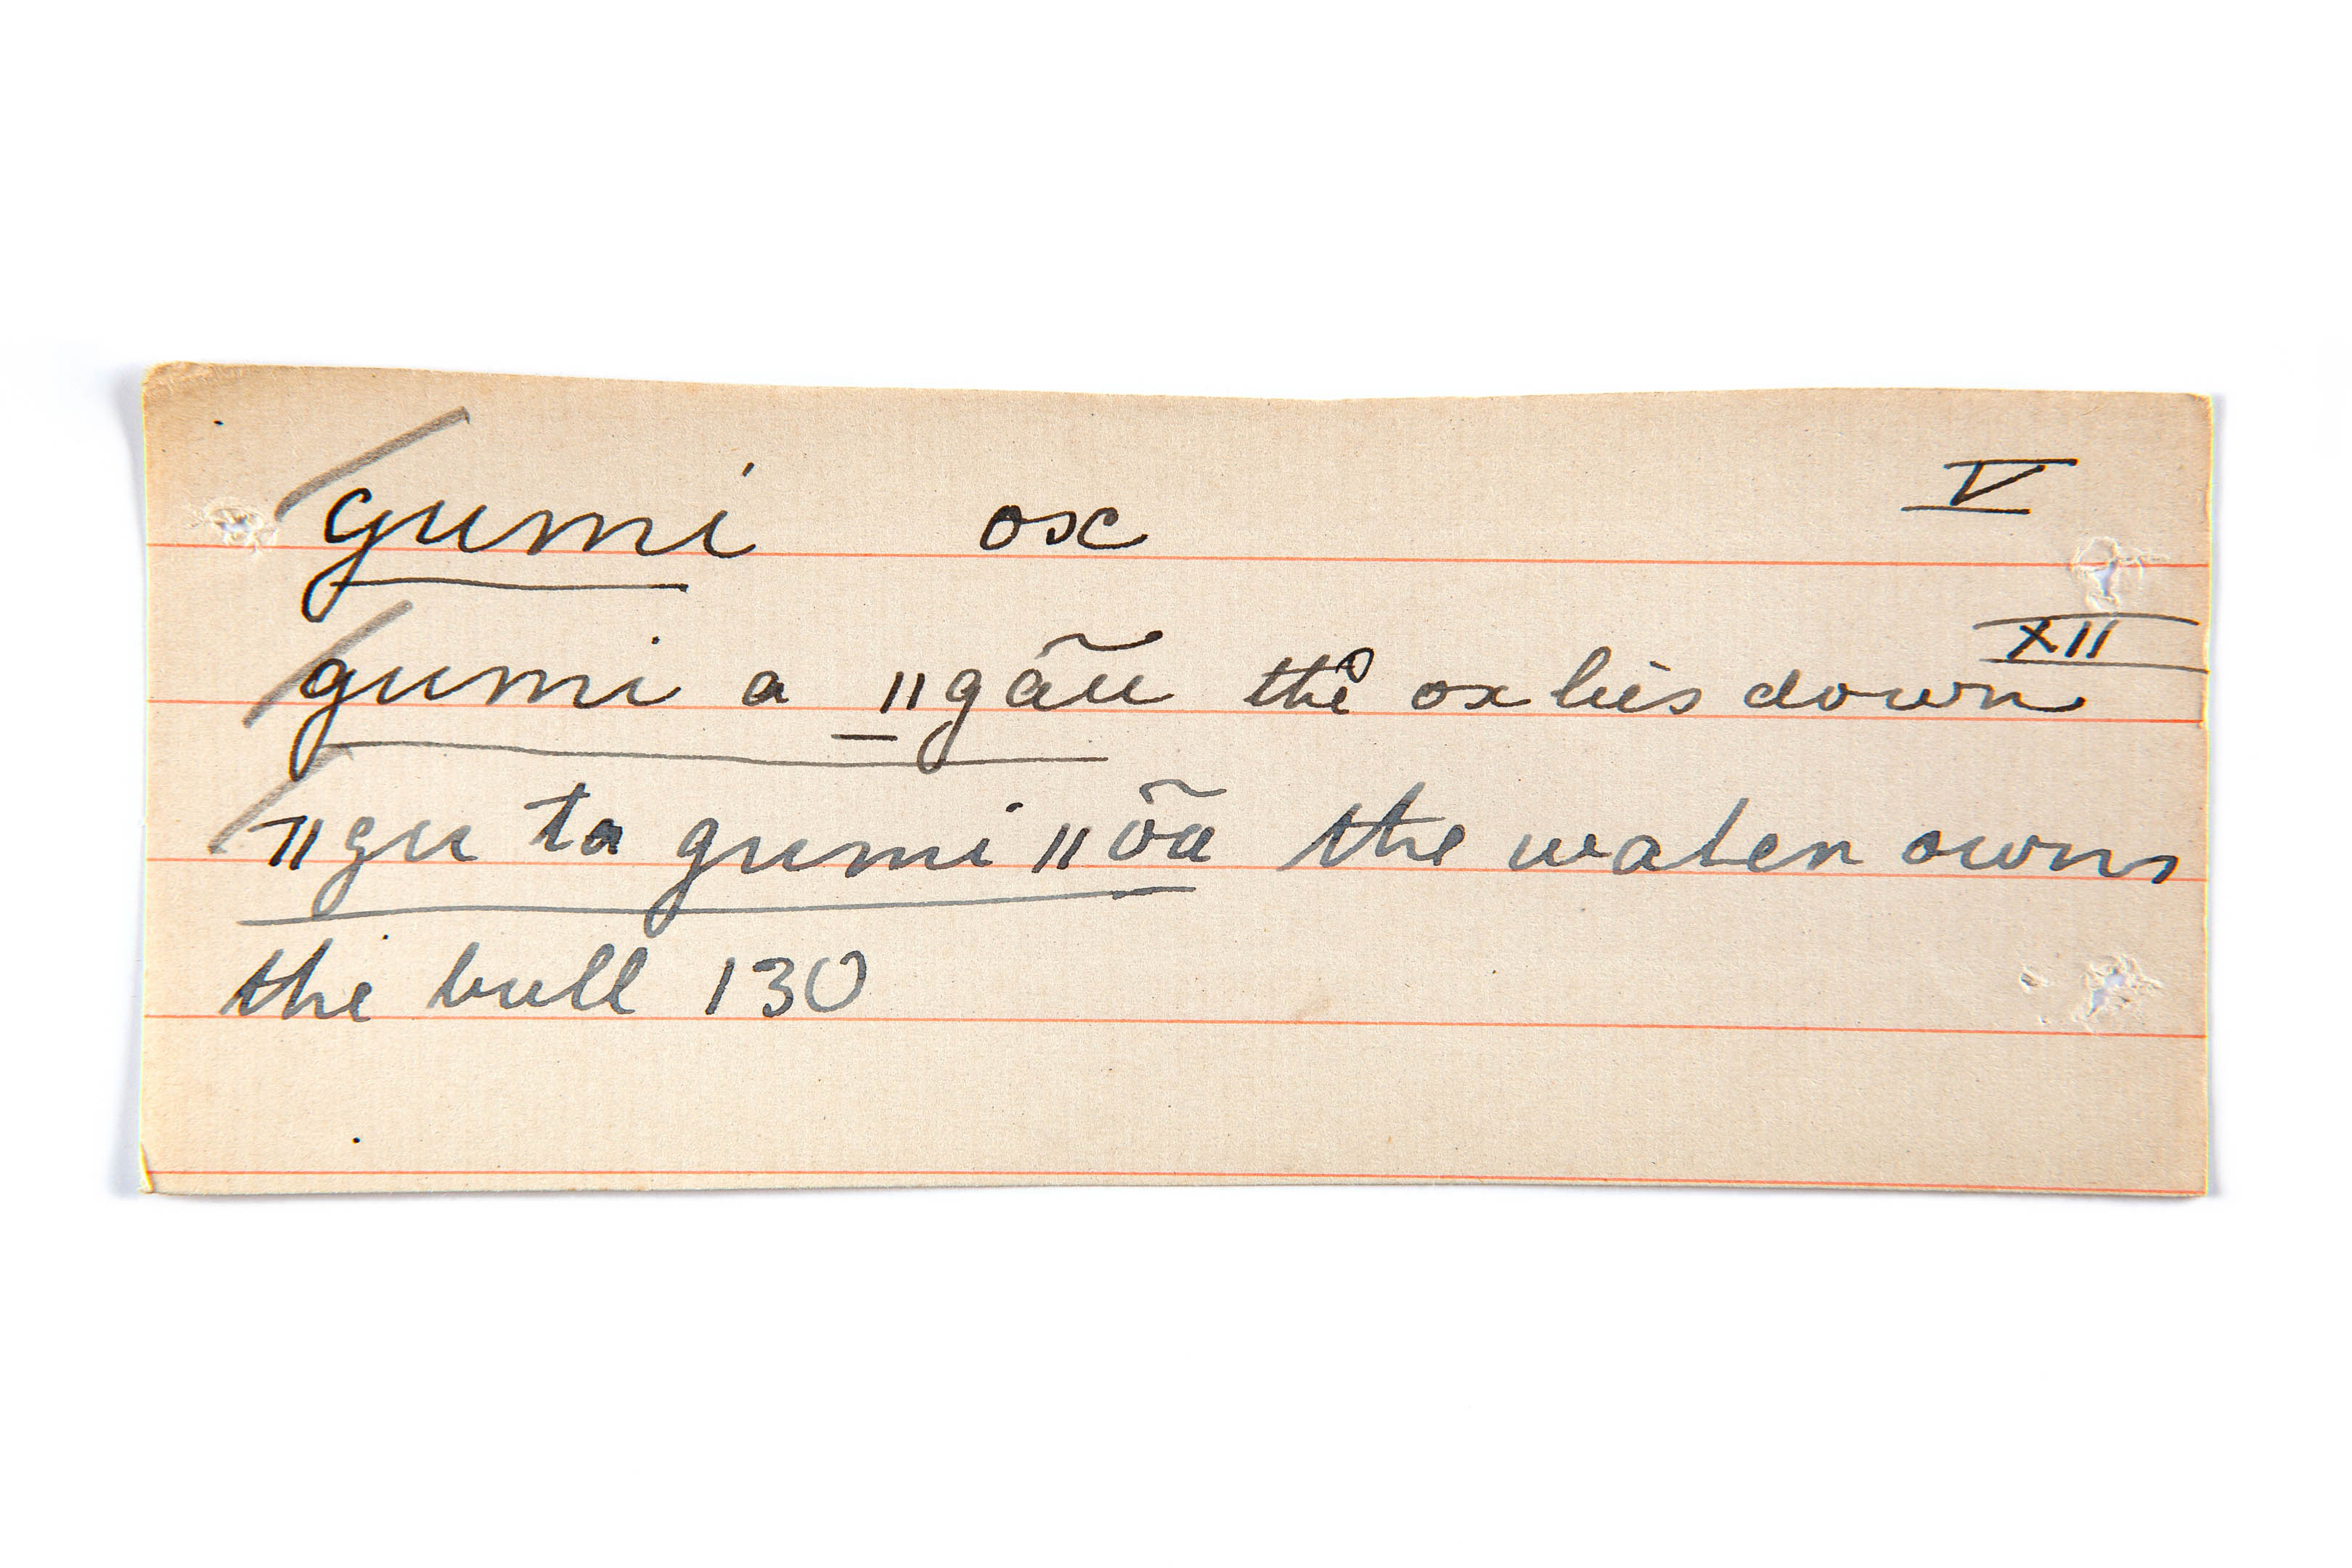 gumi ox V
gumi a ǁgãũ the ox lies down XII
ǁgu ta gumi ǁõã the water owns
the bull 130